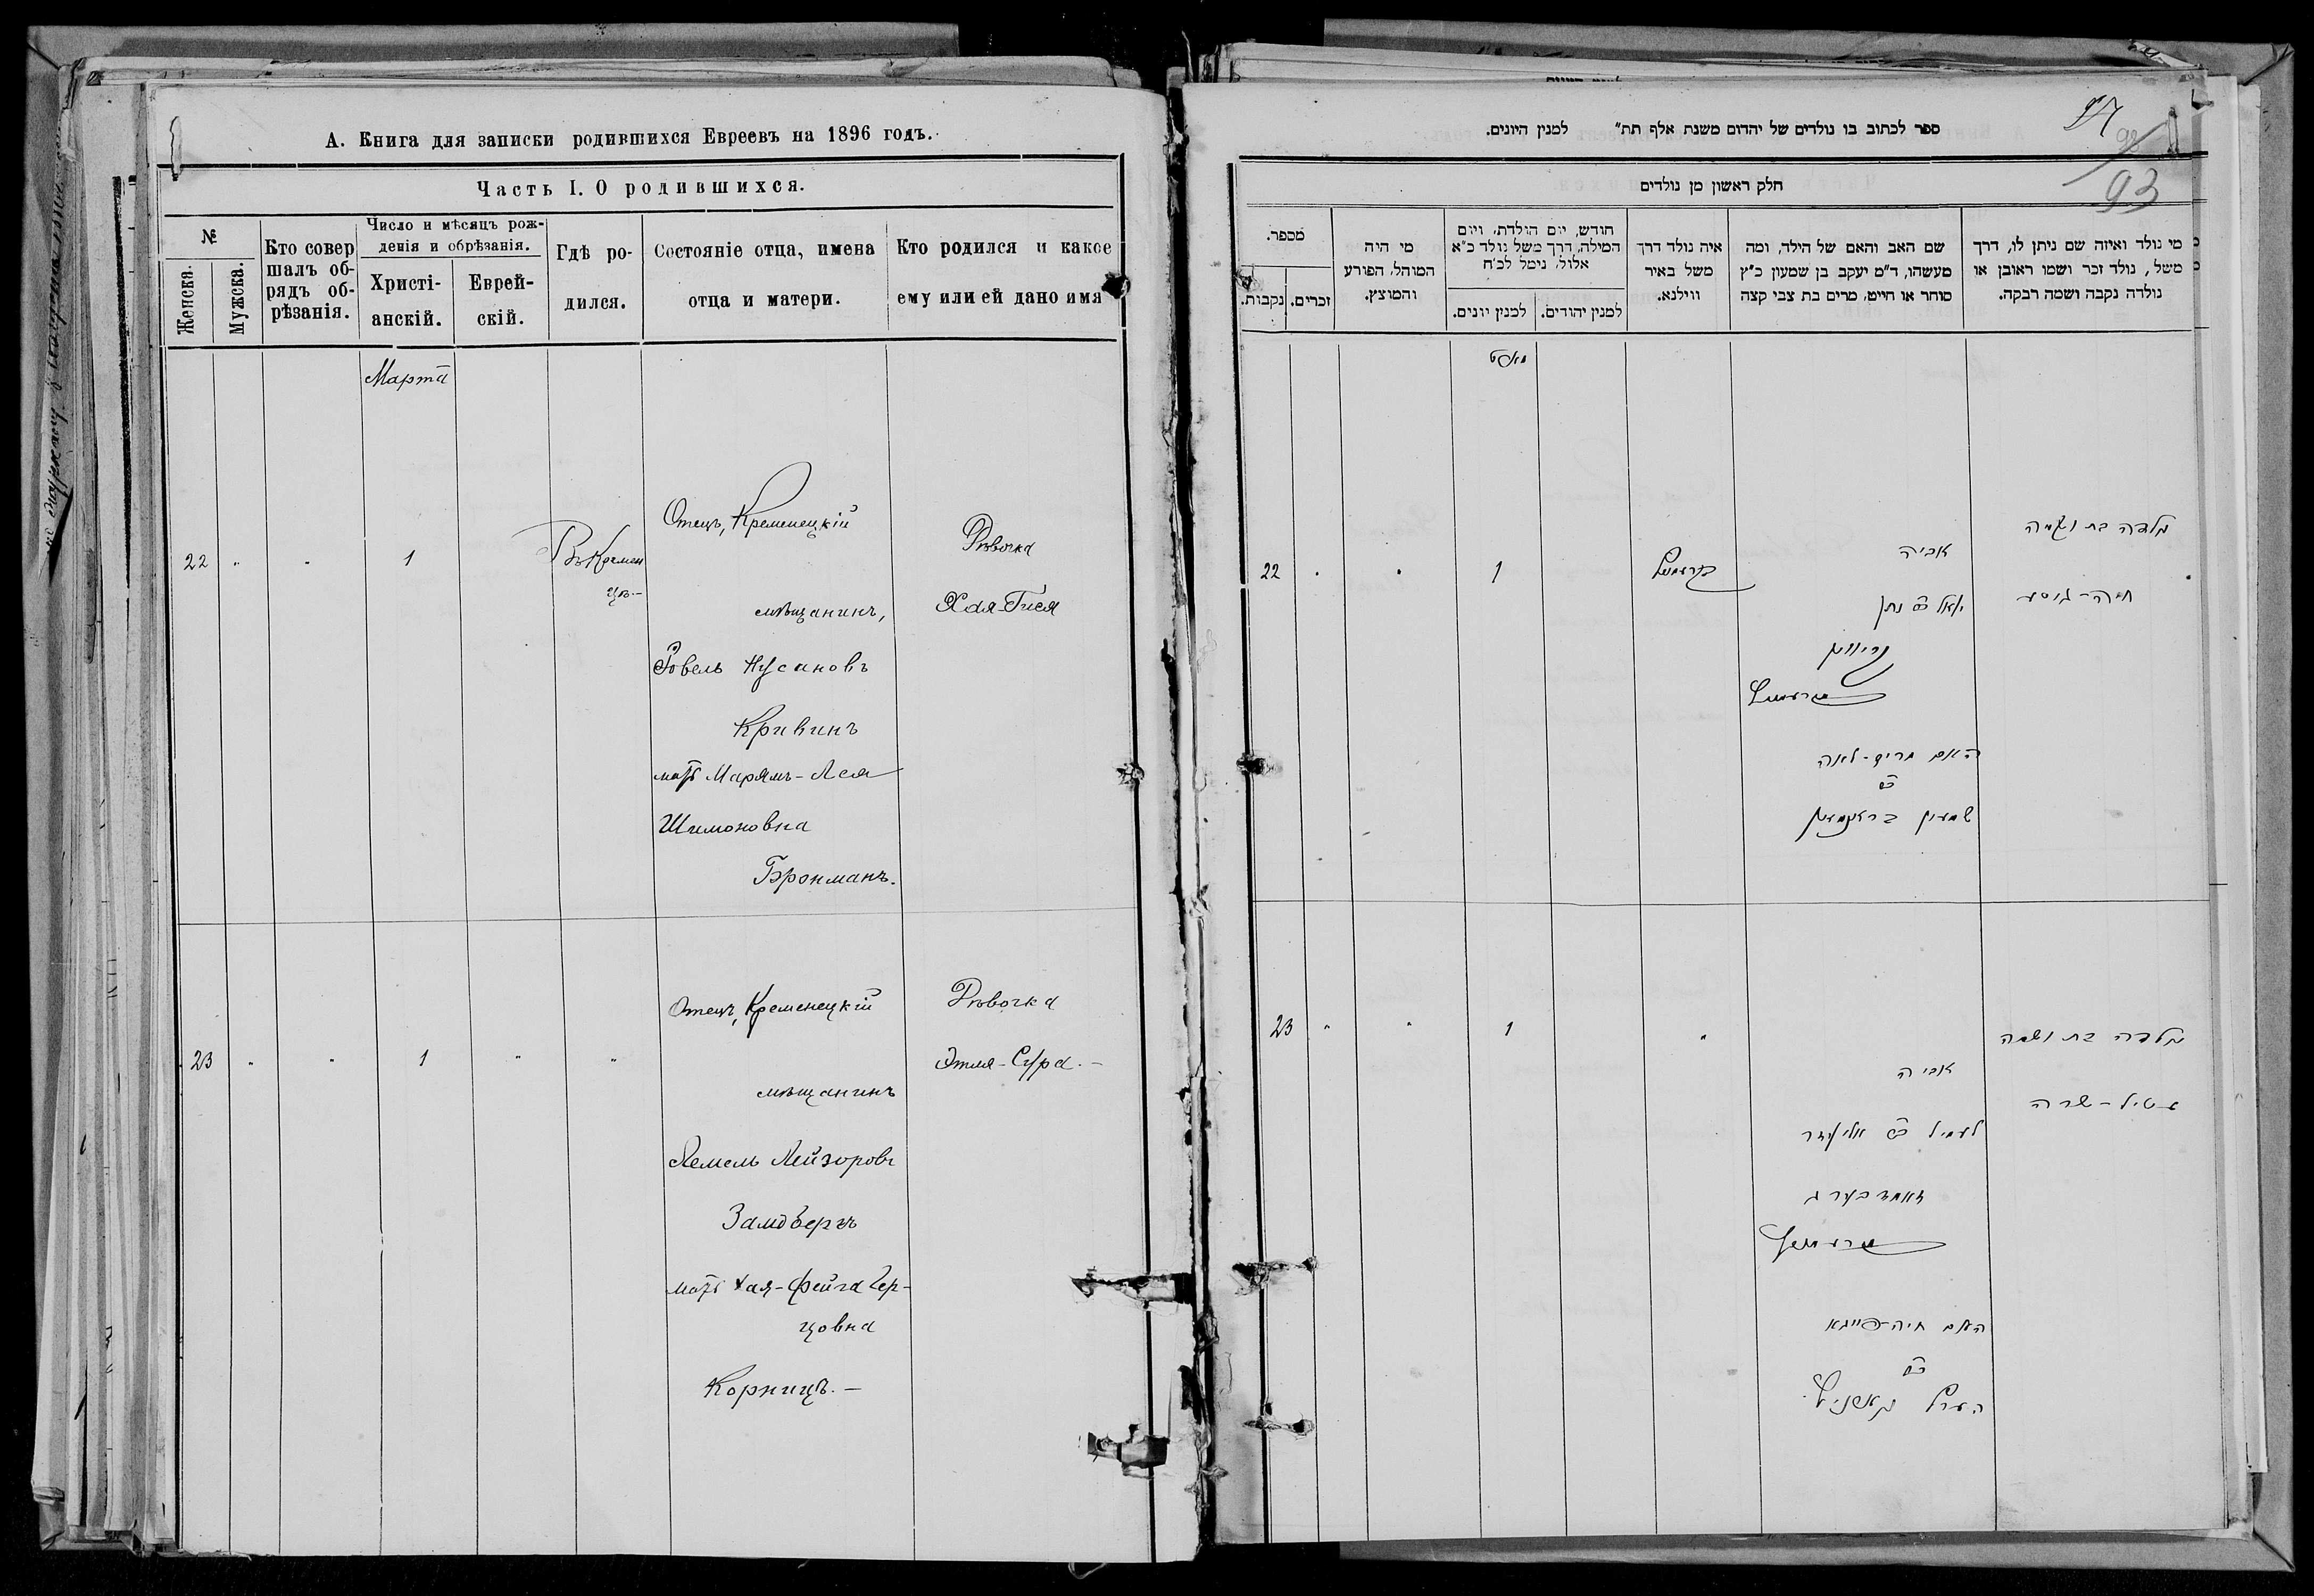 А. Книга для записки родившихся Евреевъ на 1896 годъ.
Часть I. О родившихся.
№
Женска.
Мужска.
Кто совер
шалъ об-
рядъ об-
рѣзанія.
Число и мѣсяцъ рож-
денія и обрѣзанія.
Христі-
анскій.
Еврей-
скій.
Гдѣ ро-
дился.
Состояніе отца, имена
отца и матери.
Кто родился и какое
ему или ей дано имя
Марта
22 " " 1
Въ Кремен
цѣ.-
Отецъ, Кременецкій
мѣщанинъ,
Ровель Нусановъ
Кривинъ
мать Марямъ-Лея
Шимоновна
Бронманъ.
Дѣвочка
Хая-Гися
23 " " 1 " "
Отецъ, Кременецкій
мѣщанинъ
Лемель Лейзоровъ
Замдбергъ
мать Хая-Фейга Гер-
цовна
Корницъ.-
Дѣвочка
Этля-Сура.-
ספר לכתוב בו נולדים של יהדום משנת אלף תת״ למנין היונים.
93
חלק ראשון מן נולדים
מספר.
נקבות.
זכרים.
מי היה
המוהל, הפורע
והמוצץ.
חודש, יום הולדת, ויום
המילה, דרך משל נולד כ״א
אלול, נימל לכ״ח
למנין יונים.
למנין יהודים.
איה נולד דרך
משל באיר
ווילנא.
שם האב והאם של הילד, ומה
מעשהו, ד״מ יעקב בן שמעון כ״ץ
סוחר או חייט, מרים בת צבי קצה
מי נולד ואיזה שם ניתן לו, דרך
משל, נולד זכר ושמו ראובן או
נולדה נקבה ושמה רבקה.
מארט
22 " " 1
קרעמניץ
אביה
נתן
קריווין
קרעמניץ
האם מרים-לאה
שמעון בראנמאן
נולדה בת ושמה
חיה-גיסע
23 " " 1 "
אביה
לעמיל אליעזר
זאמדבערג
קרעמניץ
האם חיה-פייגא
הערץ קארניץ
נולדה בת ושמה
עטיל-שרה